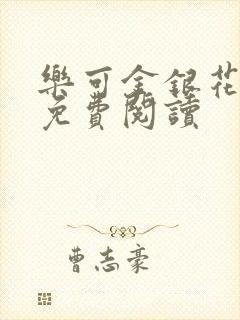 樂可金銀花
免費閱讀
曹志豪